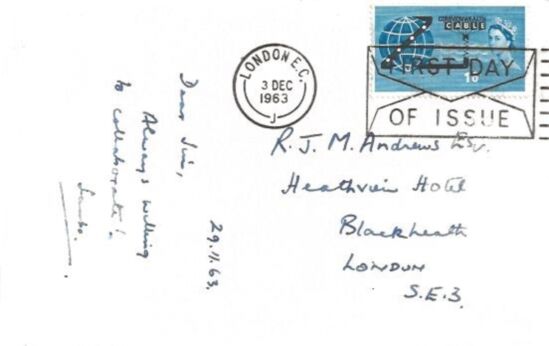 Dear Jim,
Always willing
to collaborate!
29.11.63.
LONDON E.C.
3 DEC
1963
J
COMMONWEALTH
CABLE
FIRST DAY
OF ISSUE
R. J. M. Andrews Esq.
Heathview Hotel
Blackheath
LONDON
S.E.3.